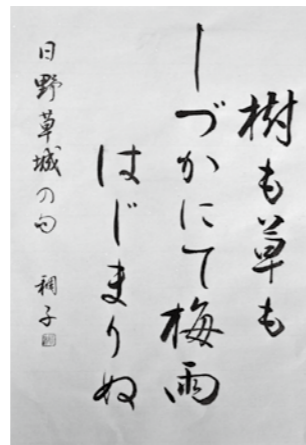 樹も草も
しづかにて梅雨
はじまりぬ
日野草城の句 稠子